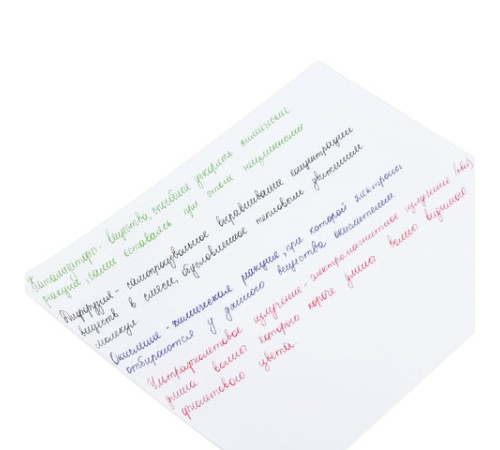 Катализаторы - вещества, способные ускорять химические
реакции, сами оставаясь при этом неизменными
Диффузия - самопроизвольное выравнивание концентрации
веществ в смеси, обусловленное тепловым движением
молекул
Окисление - химические реакции, при которой электроны
отбираются у данного вещества окислителем
Ультрафиолетовое излучение - электромагнитное излучение (свет)
длина волны которого короче длины волны видимого
фиолетового цвета.